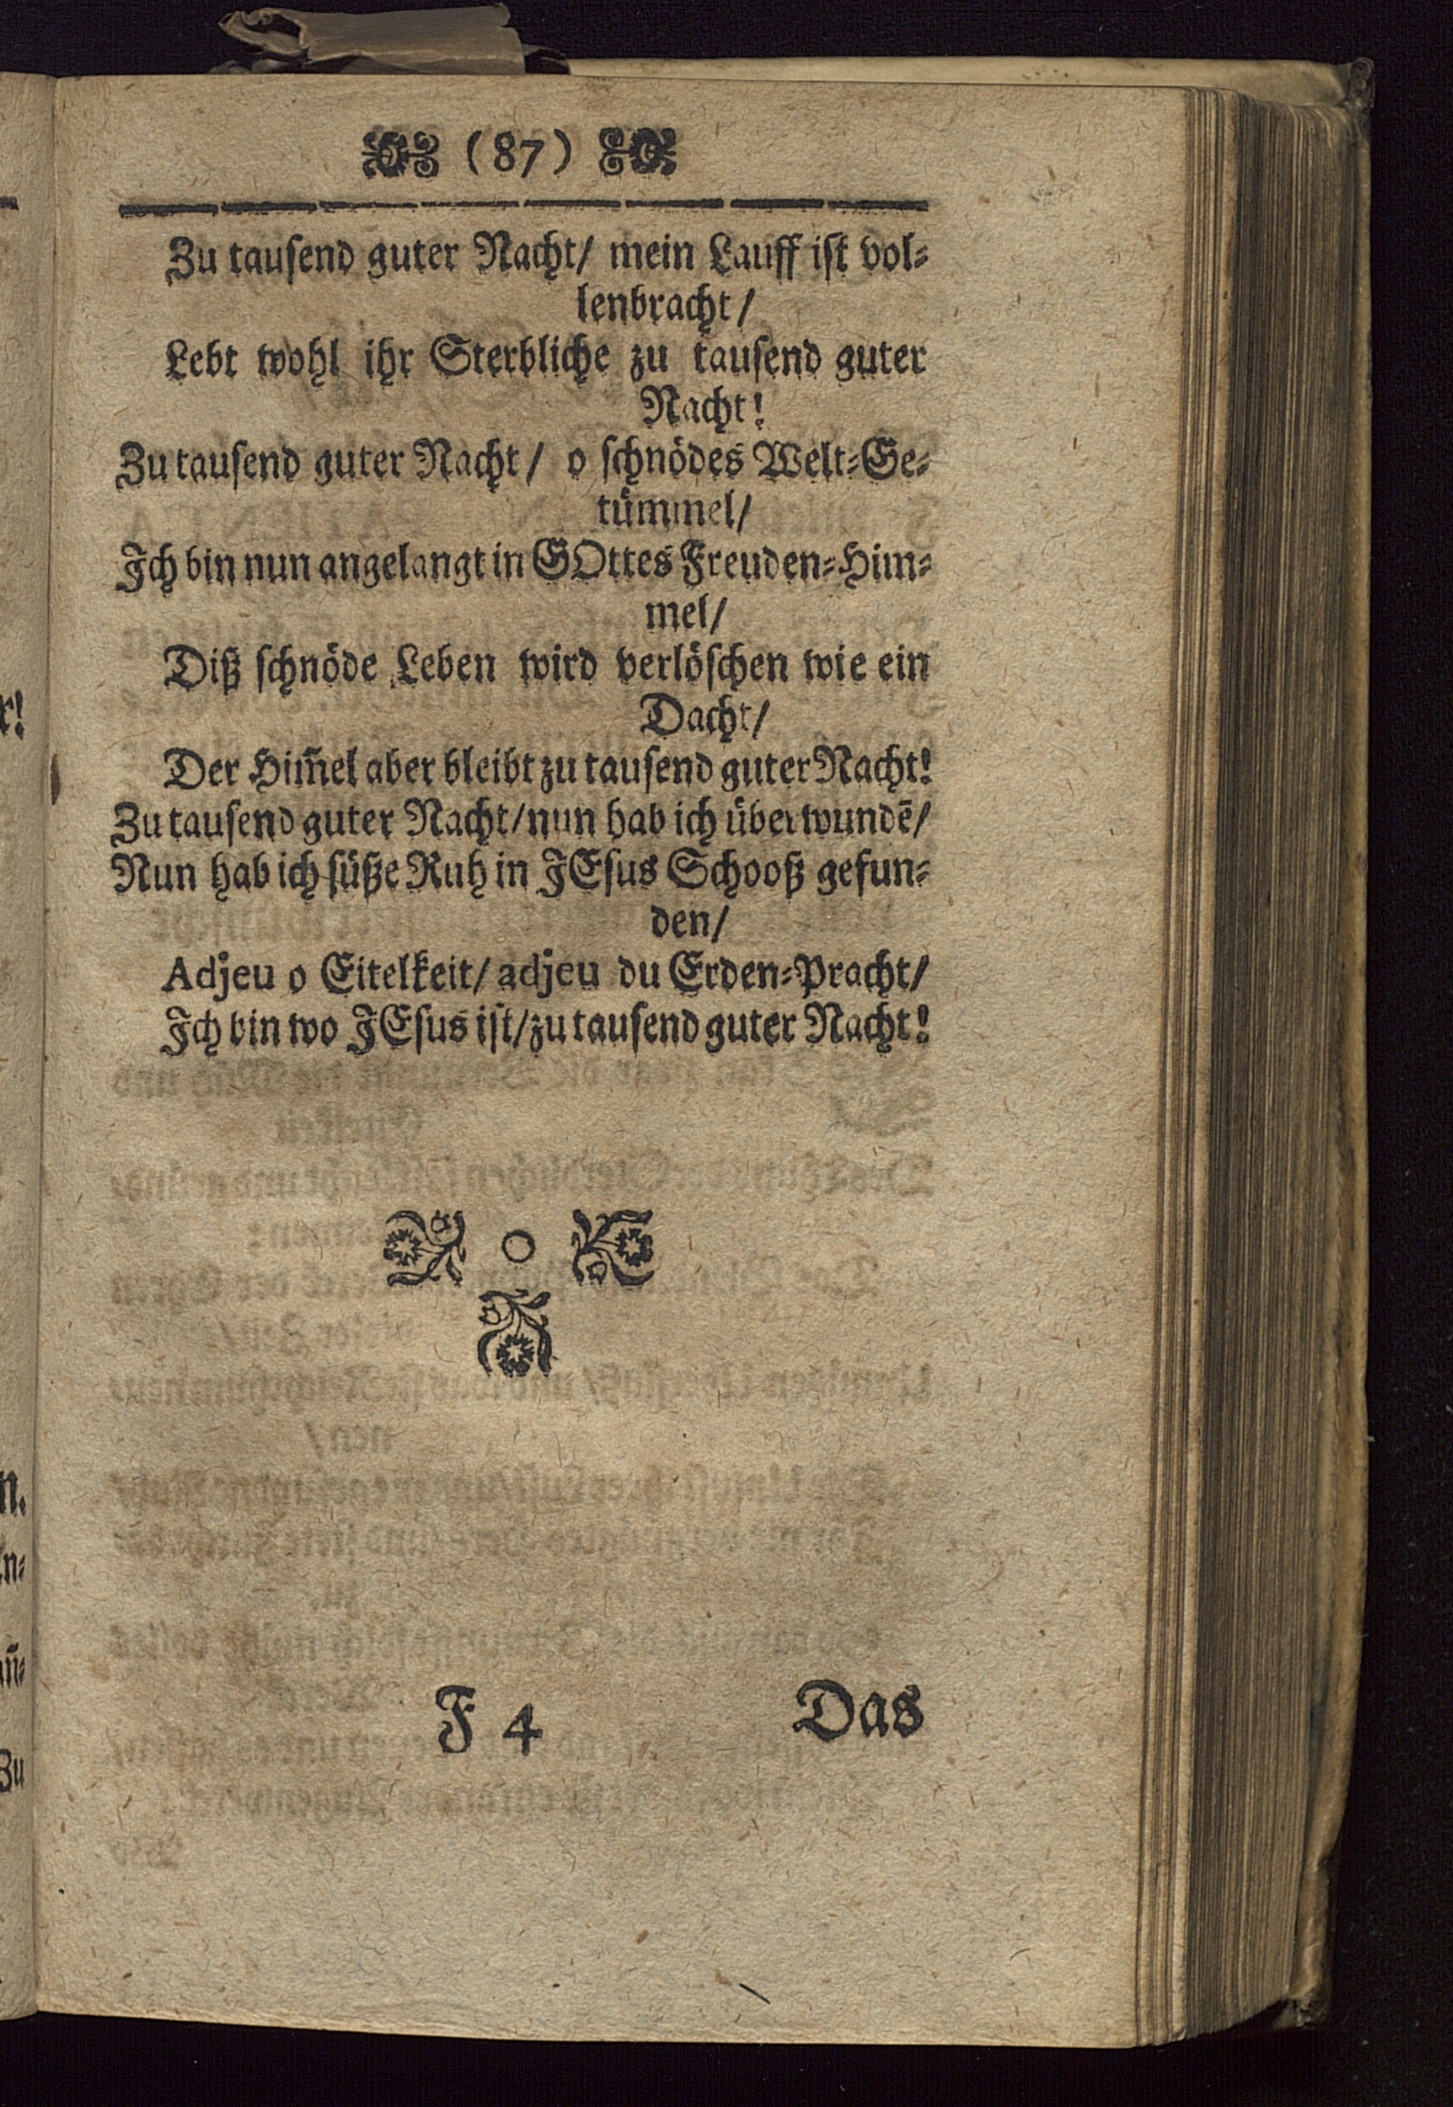 (87)
Zu tausend guter Nacht/ mein Lauff ist vol-
lenbracht/
Lebt wohl ihr Sterbliche zu tausend guter
Nacht!
Zu tausend guter Nacht/ o schnödes Welt-Ge-
tümmel/
Ich bin nun angelangt in GOttes Freuden-Him-
mel/
Diß schnöde Leben wird verlöschen wie ein
Dacht/
Der Him̃el aber bleibt zu tausend guter Nacht!
Zu tausend guter Nacht/ nun hab ich überwundẽ/
Nun hab ich süße Ruh in JEsus Schooß gefun-
den/
Adjeu o Eitelkeit/ adjeu du Erden-Pracht/
Ich bin wo JEsus ist/ zu tausend guter Nacht!
F 4 Das